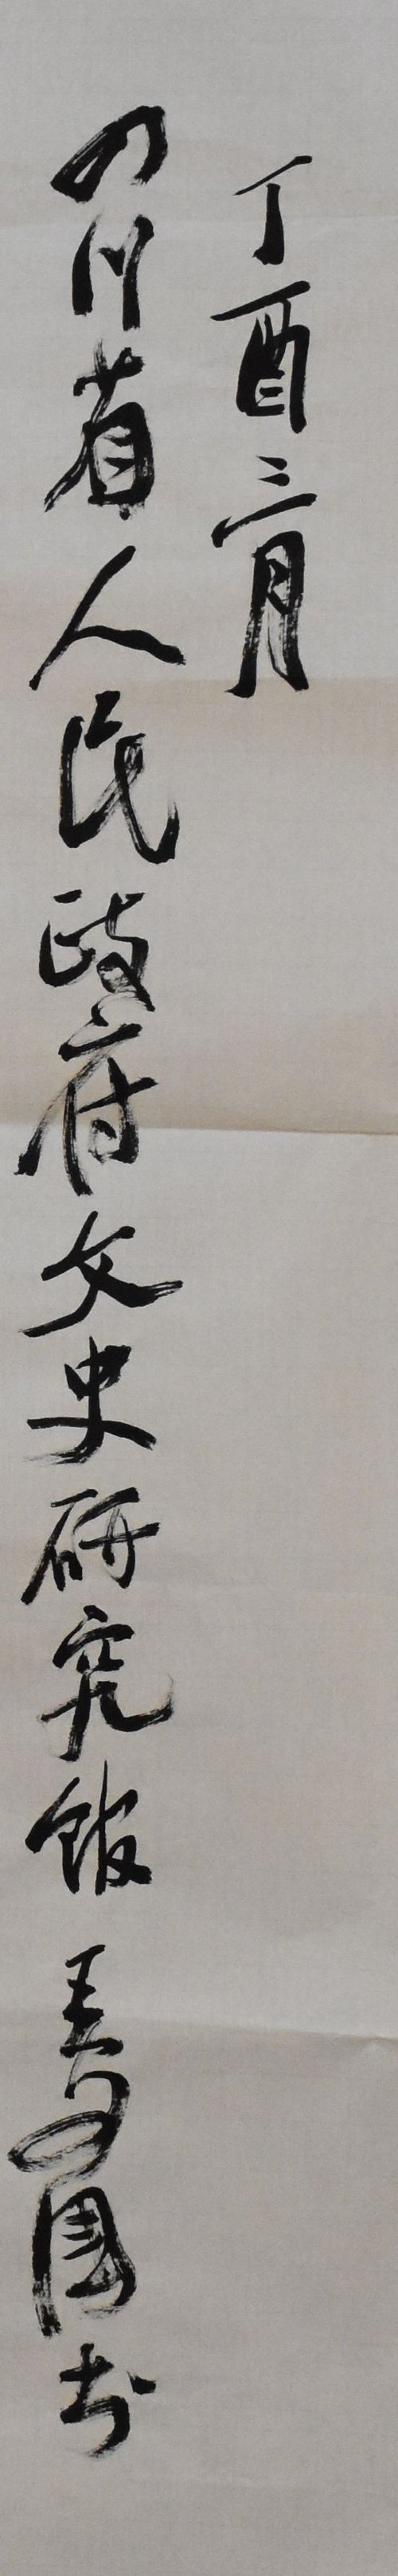 丁酉三月
四川省人民政府文史研究馆 书